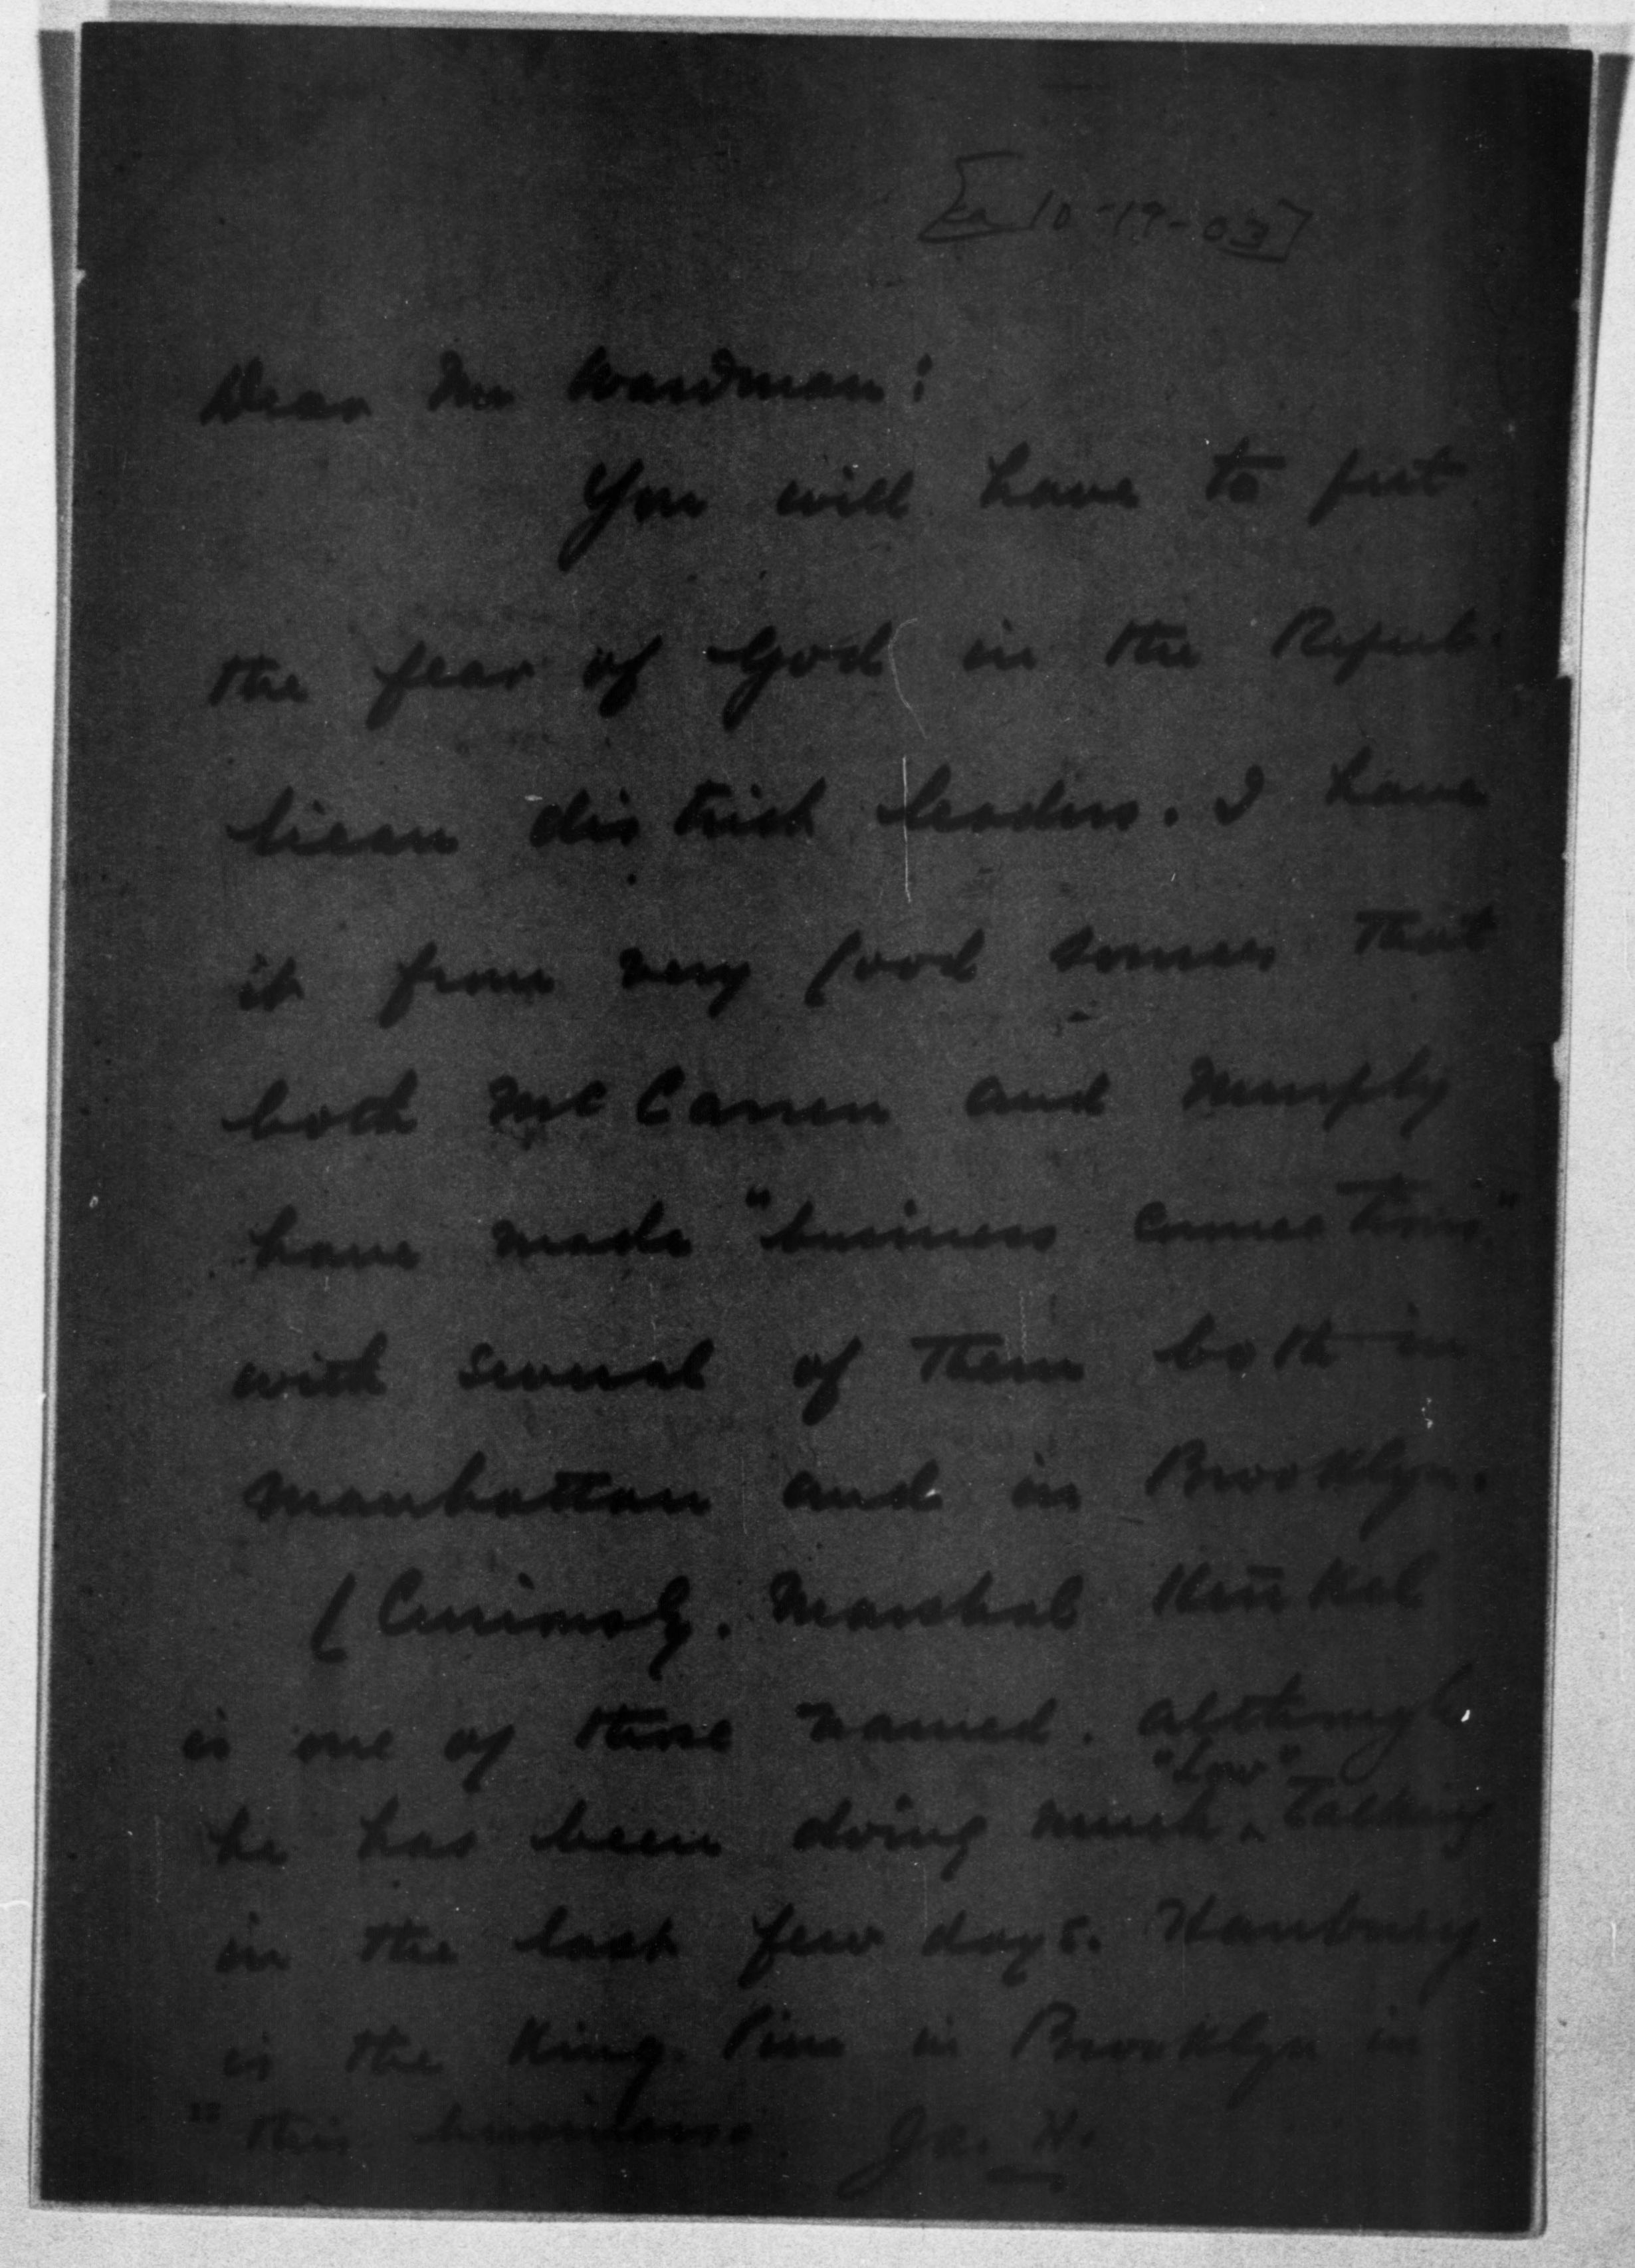 [ca 10-19-03]
Dear Mr Wardman:
You will have to put
the fear of God in the Repub-
lican district leaders. I have
it from very good sources that
both McCarren and Murphy
have made "business connections"
with several of them both in
Manhattan and in Brooklyn.
(Curiously. Marshal Henkel
is one of those named. Although
"Low"
he has been doing much ^ talking
in the last few days. Hanbury
is the King Pin in Brooklyn in
this business Ja. H.